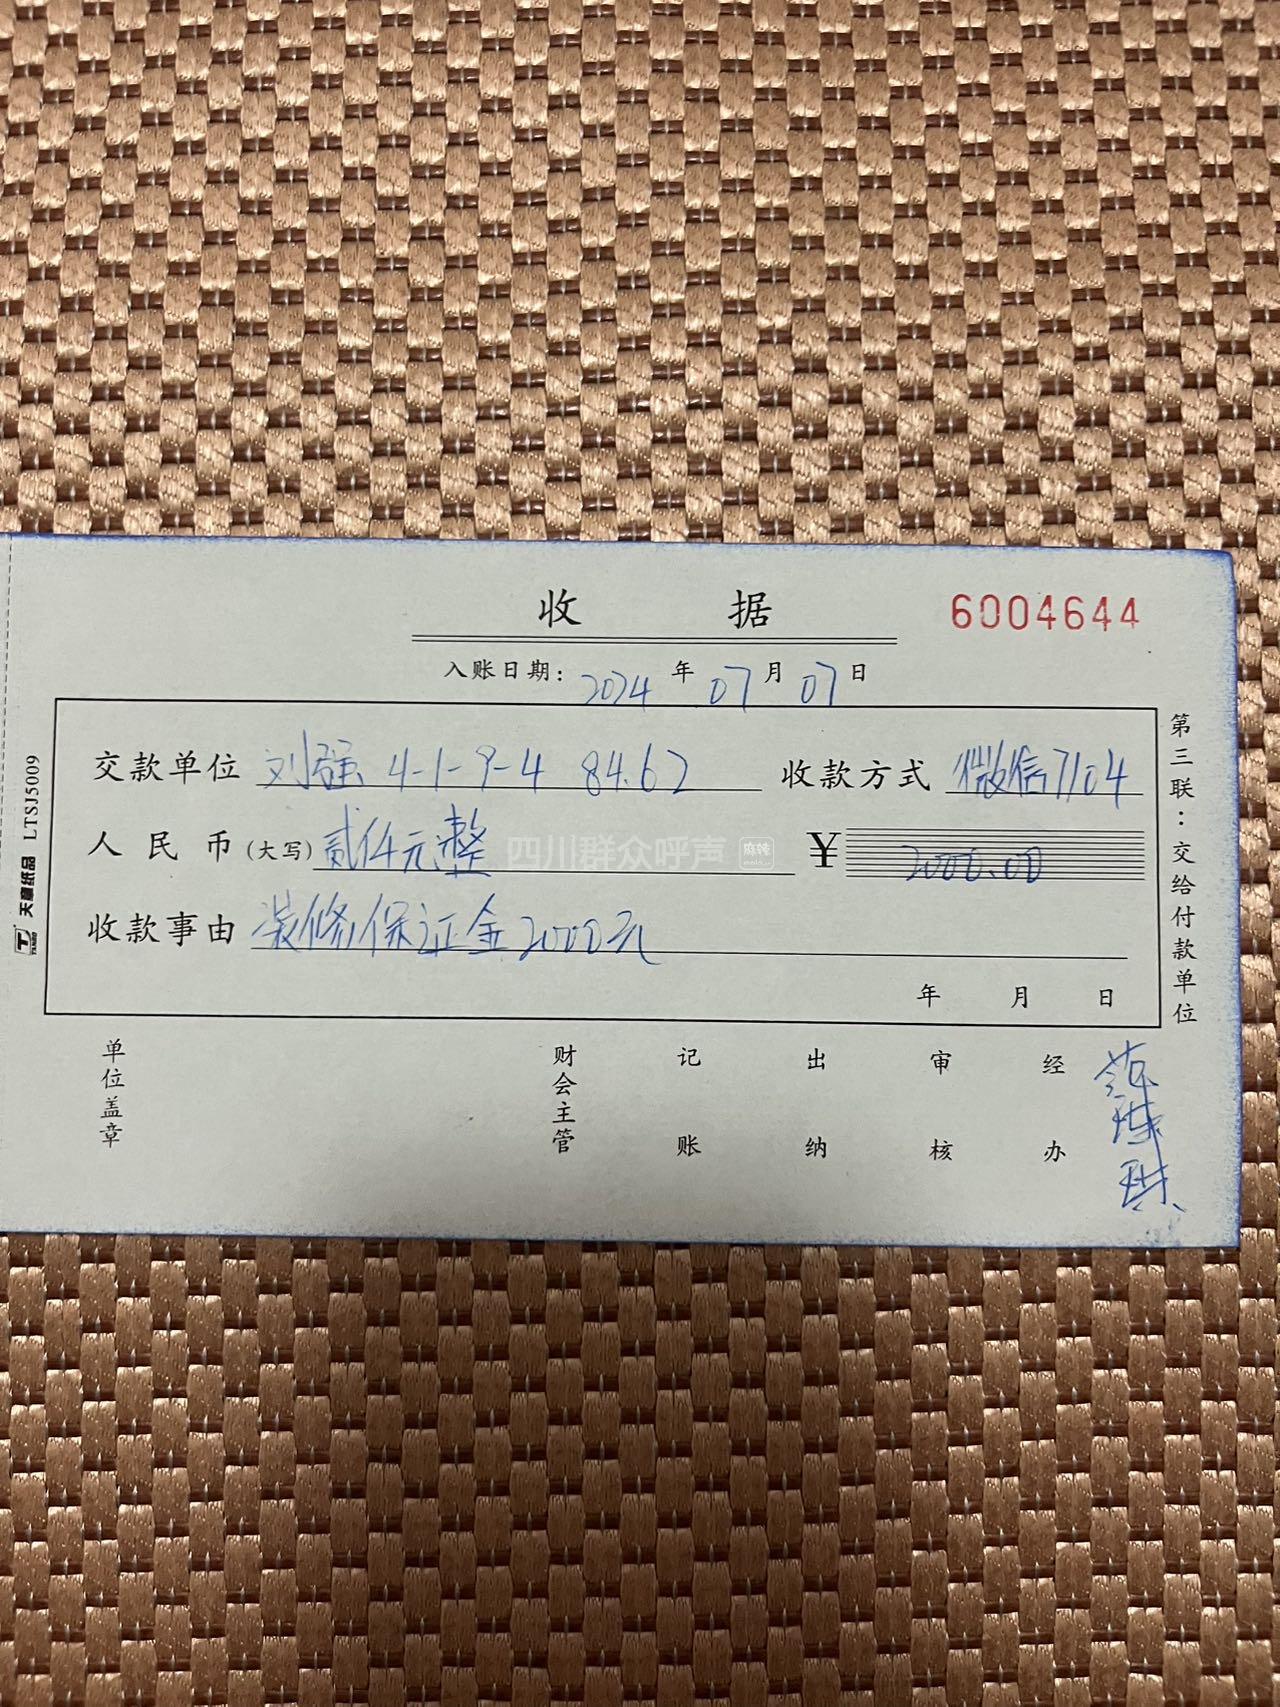 收 据 6004644
入账日期: 2024 年 07 月 07 日
交款单位 刘强 4-1-9-4 84.62 收款方式 微信7104
人民币(大写) 贰仟元整 ¥ 2000.00
四川群众呼声 麻辣
收款事由 装修保证金2000元
年 月 日
单位盖章 财会主管 记账 出纳 审核 经办 范琪
第三联:交给付款单位
LTSJ5009
天章纸品